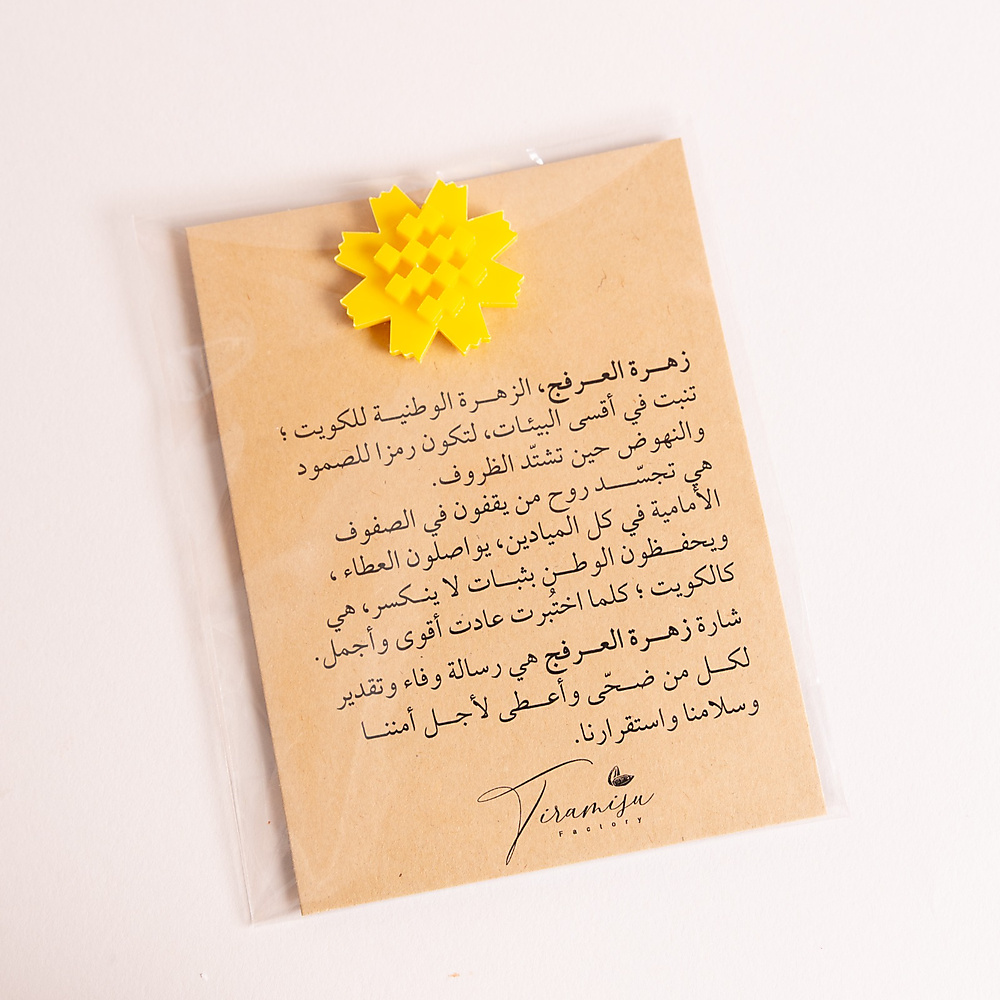 زهرة العرفج، الزهرة الوطنية للكويت ؛
تنبت في أقسى البيئات، لتكون رمزا للصمود
والنهوض حين تشتّد الظروف.
هي تجسّد روح من يقفون في الصفوف
الأمامية في كل الميادين، يواصلون العطاء ،
ويحفظون الوطن بثبات لا ينكسر، هي
كالكويت ؛ كلما اختُبرت عادت أقوى وأجمل.
شارة زهرة العرفج هي رسالة وفاء وتقدير
لكل من ضحّى وأعطى لأجل أمننا
وسلامنا واستقرارنا.
Tiramisu
Factory